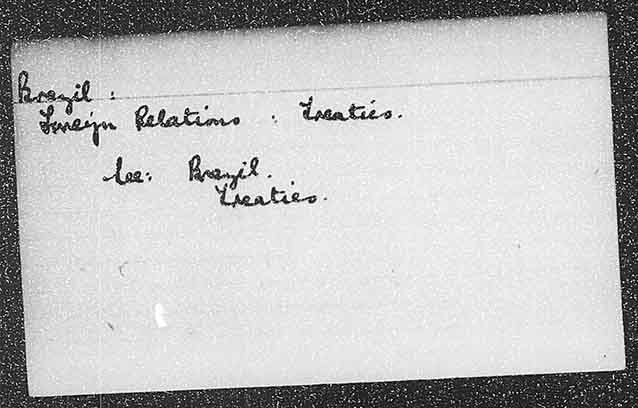 Brazil :
Foreign Relations : Treaties.
See: Brazil.
Treaties.